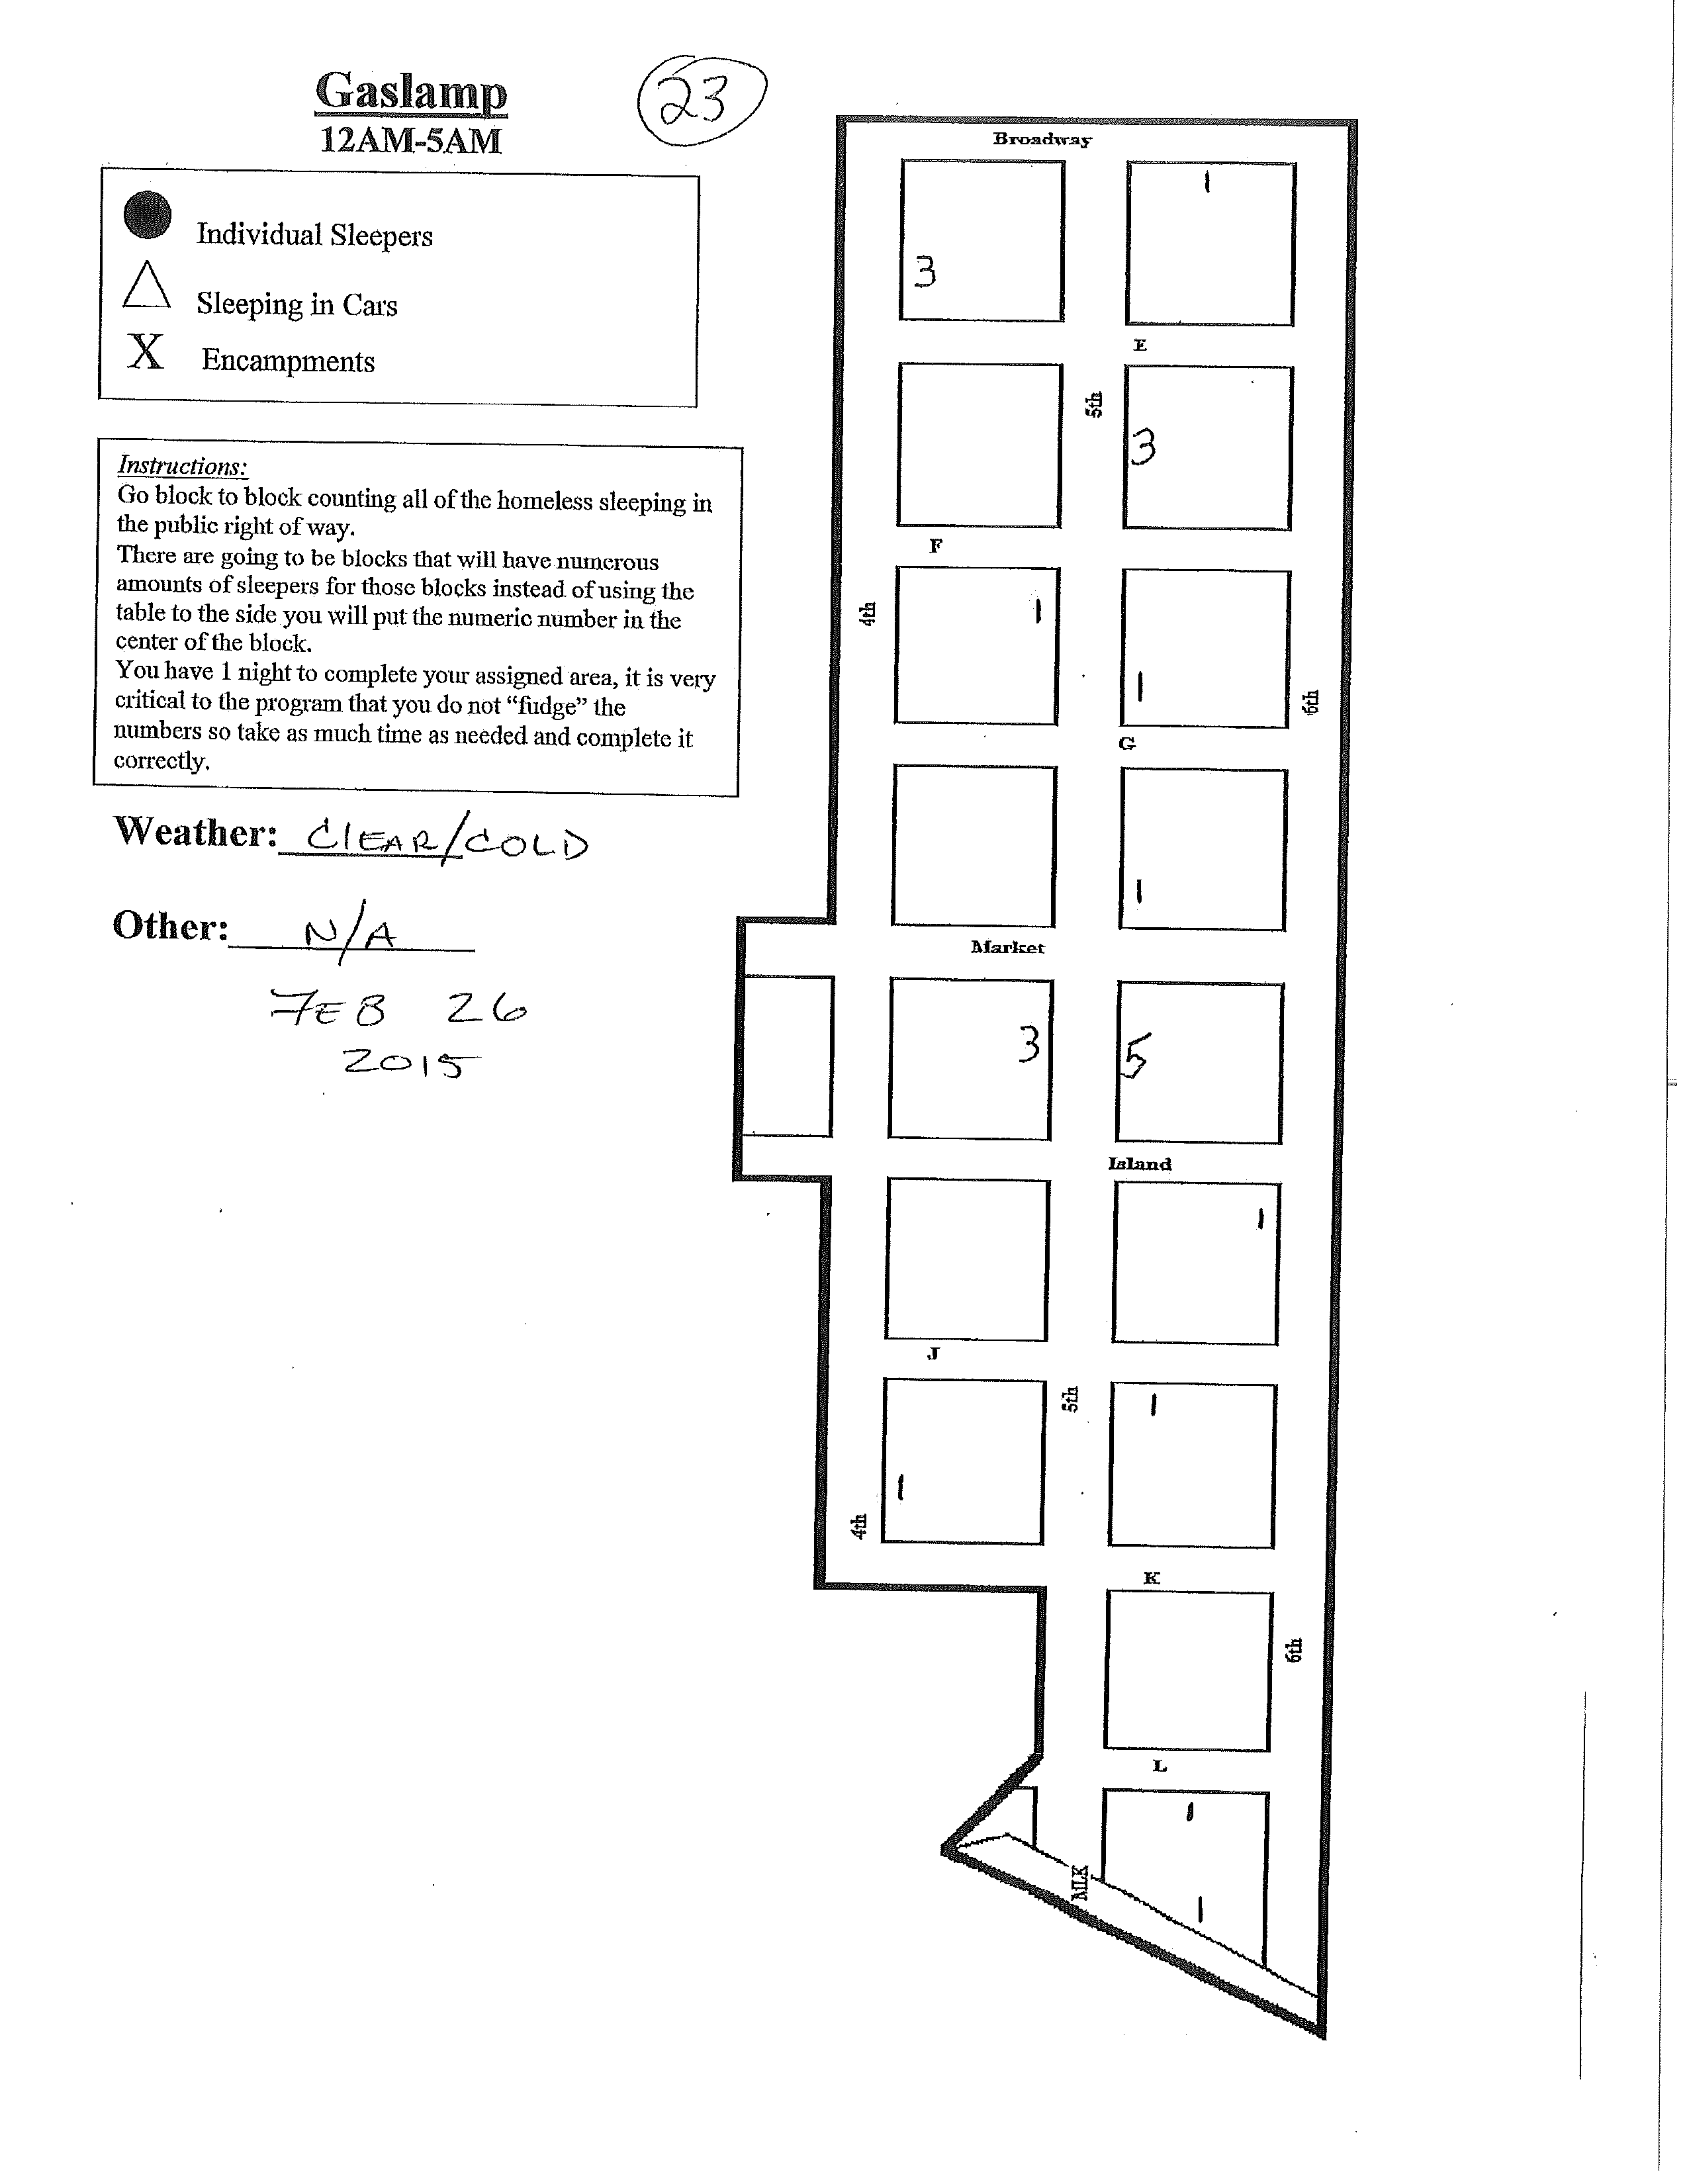 Gaslamp
12AM-5AM
23
Individual Sleepers
Sleeping in Cars
X Encampments
Instructions:
Go block to block counting all of the homeless sleeping in
the public right of way.
There are going to be blocks that will have numerous
amounts of sleepers for those blocks instead of using the
table to the side you will put the numeric number in the
center of the block.
You have 1 night to complete your assigned area, it is very
critical to the program that you do not “fudge” the
numbers so take as much time as needed and complete it
correctly.
Weather: CLEAR/COLD
Other: N/A
FEB 26
2015
Broadway
1
3
E
5th
3
F
4th
1
1
6th
G
1
Market
3
5
Island
1
J
5th
1
1
4th
K
6th
L
1
MLK
1